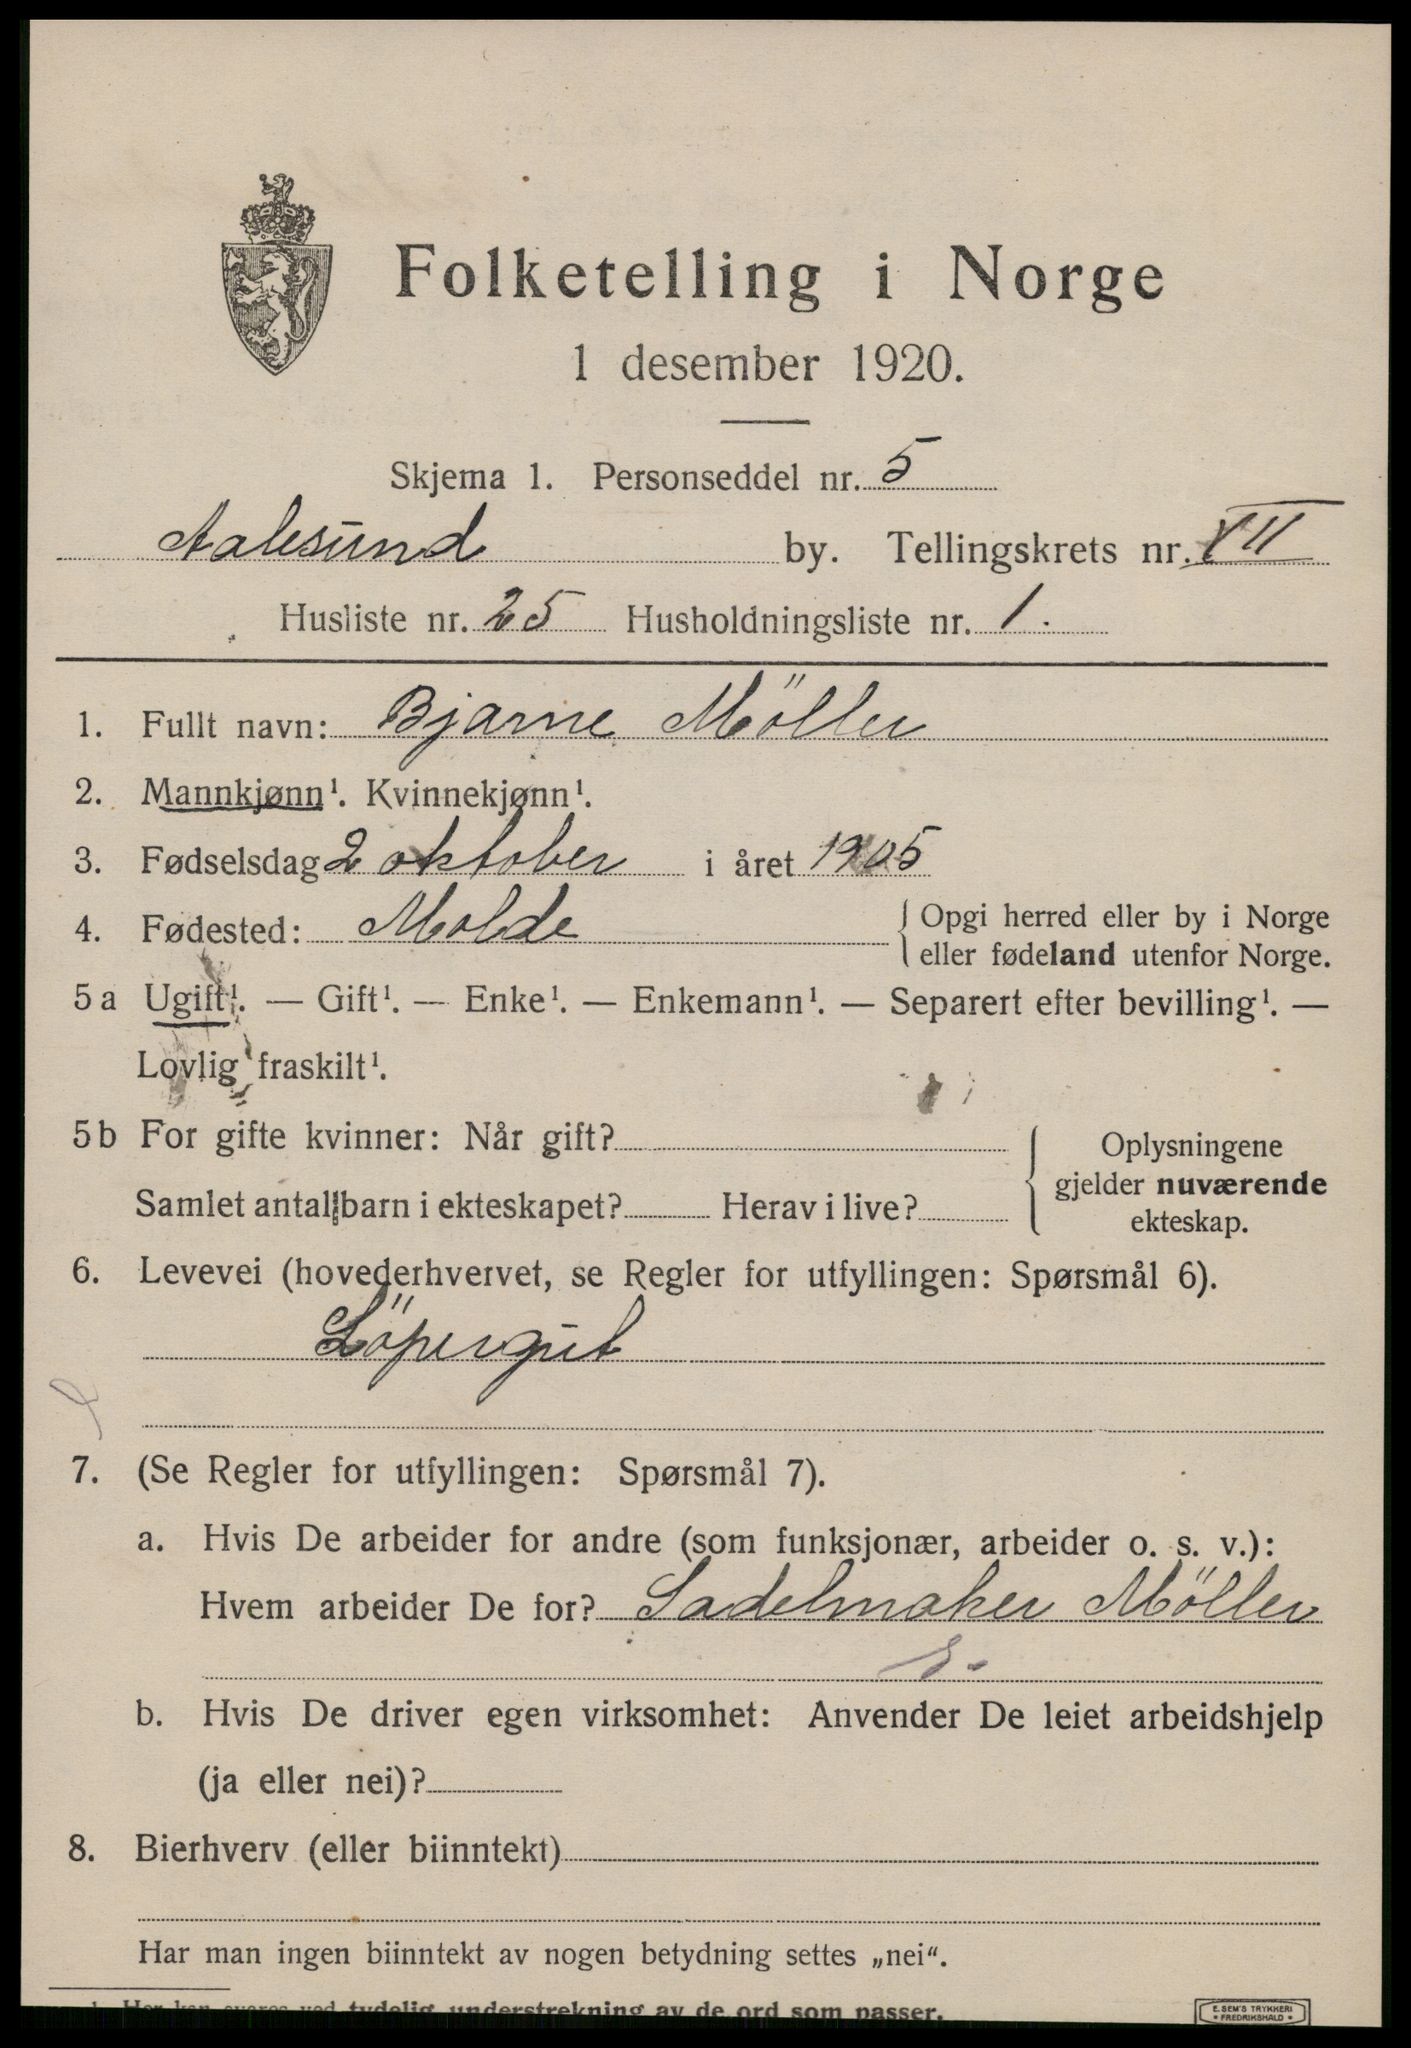 Folketelling i Norge
1 desember 1920.
Skjema 1. Personseddel nr. 5
Aalesund by. Tellingskrets nr. VII
Husliste nr. 25 Husholdningsliste nr. 1.
1. Fullt navn: Bjarne Möller
2. Mannkjønn¹. Kvinnekjønn¹.
3. Fødselsdag 2 oktober i året 1905
4. Fødested: Molde { Opgi herred eller by i Norge
eller fødeland utenfor Norge.
5 a Ugift¹. — Gift¹. — Enke¹. — Enkemann¹. — Separert efter bevilling¹. —
Lovlig fraskilt¹.
5 b For gifte kvinner: Når gift? { Oplysningene
gjelder nuværende
Samlet antall barn i ekteskapet? Herav i live? ekteskap.
6. Levevei (hovederhvervet, se Regler for utfyllingen: Spørsmål 6).
Löpergut
7. (Se Regler for utfyllingen: Spørsmål 7).
a. Hvis De arbeider for andre (som funksjonær, arbeider o. s. v.):
Hvem arbeider De for? Sadelmaker Möller
b. Hvis De driver egen virksomhet: Anvender De leiet arbeidshjelp
(ja eller nei)?
8. Bierhverv (eller biinntekt)
Har man ingen biinntekt av nogen betydning settes „nei“.
1 Her kan svares ved tydelig understrekning av de ord som passer.
E. SEM'S TRYKKERI
• FREDRIKSHALD •